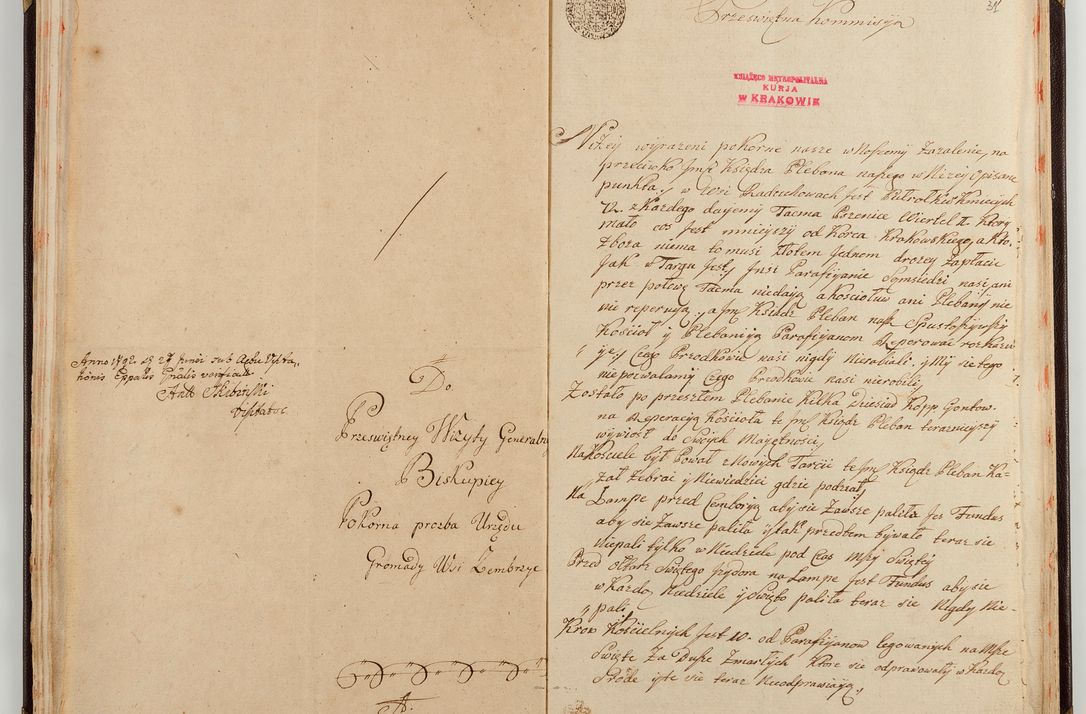 Anno 1792 d 27 Junii sub Actu Visita,,
tionis Eppalis Gralis
Antt Skibiński
Visitator
Do
Przeswiętney Wizyty Generalny
Biskupiey
Pokorna prozba Urzędu
Gromady Wsi Zembrzyc
31
Przeswiętna Kommisyja
KSIĄŻĘCO METROPOLITALNA
KURJA
W KRAKOWIE
Niżey wyrażeni pokorne nasze wnosziemy Zażalenie, na
przeciwko Jmć Księdza Plebana naszego w Niżey opisane
punkta, w Wsi Radochowach Jest Kmiecych
72. z Każdego daiemy Tacma Pszenice Wiertel II. Ktory
mało cos Jest mnieyszy od Korca Krokowskiego, a Kto
Zboza niema to musi Złotem Jednem drozey Zapłacić
Jak w Targu Jest, Jnsi Parafijanie Somsiedzi nasi ani
przez połowę Tacma niedaią a Kosciołow ani Plebanij nie
nie reperuią, a Jmć Ksiądz Pleban nasz Spustoszywszy
Kościoł y Plebaniyą Parafiyanom Reperować rozkazu
iye, Czego Przodkowie nasi nigdy Nierabiali, y My sie tego
niepozwalamy Czego Przodkowie nasi nierobili,
Zostało po przeszłem Plebanie Kilka Dziesiąt Kopp Gontow.
na Reperacyią Kościoła te Jmć Ksiądz Pleban terazniejszy
wywiosł do Swych Maiętności,
Na Kościele był Pował z Nowych Tarcic te Jmć Ksiądz Pleban Ka-
zał Zebrac y Niewiedziei gdzie podział,
Na Lampe przed Cemboryą aby sie Zawsze paliła Jes Fundus
aby sie Zawsze paliła y tak przedtem bywało teraz sie
Niepali tylko w Niedziele pod Czas Mszy Swiętey
Przed ołtarz Swiętego Jzydora na Lampe Jest Fundus aby sie
w Kazdo Niedziele y Swięto paliła teraz sie Nigdy Nie-
,, pali,
Krow Kościelnych Jest 10. od Parafiyanow legowanych na Msze
Swięte Za Dusze Zmarłych Ktore sie odprawowały w Kazdo
Srode y te sie teraz Nieodprawiaią,